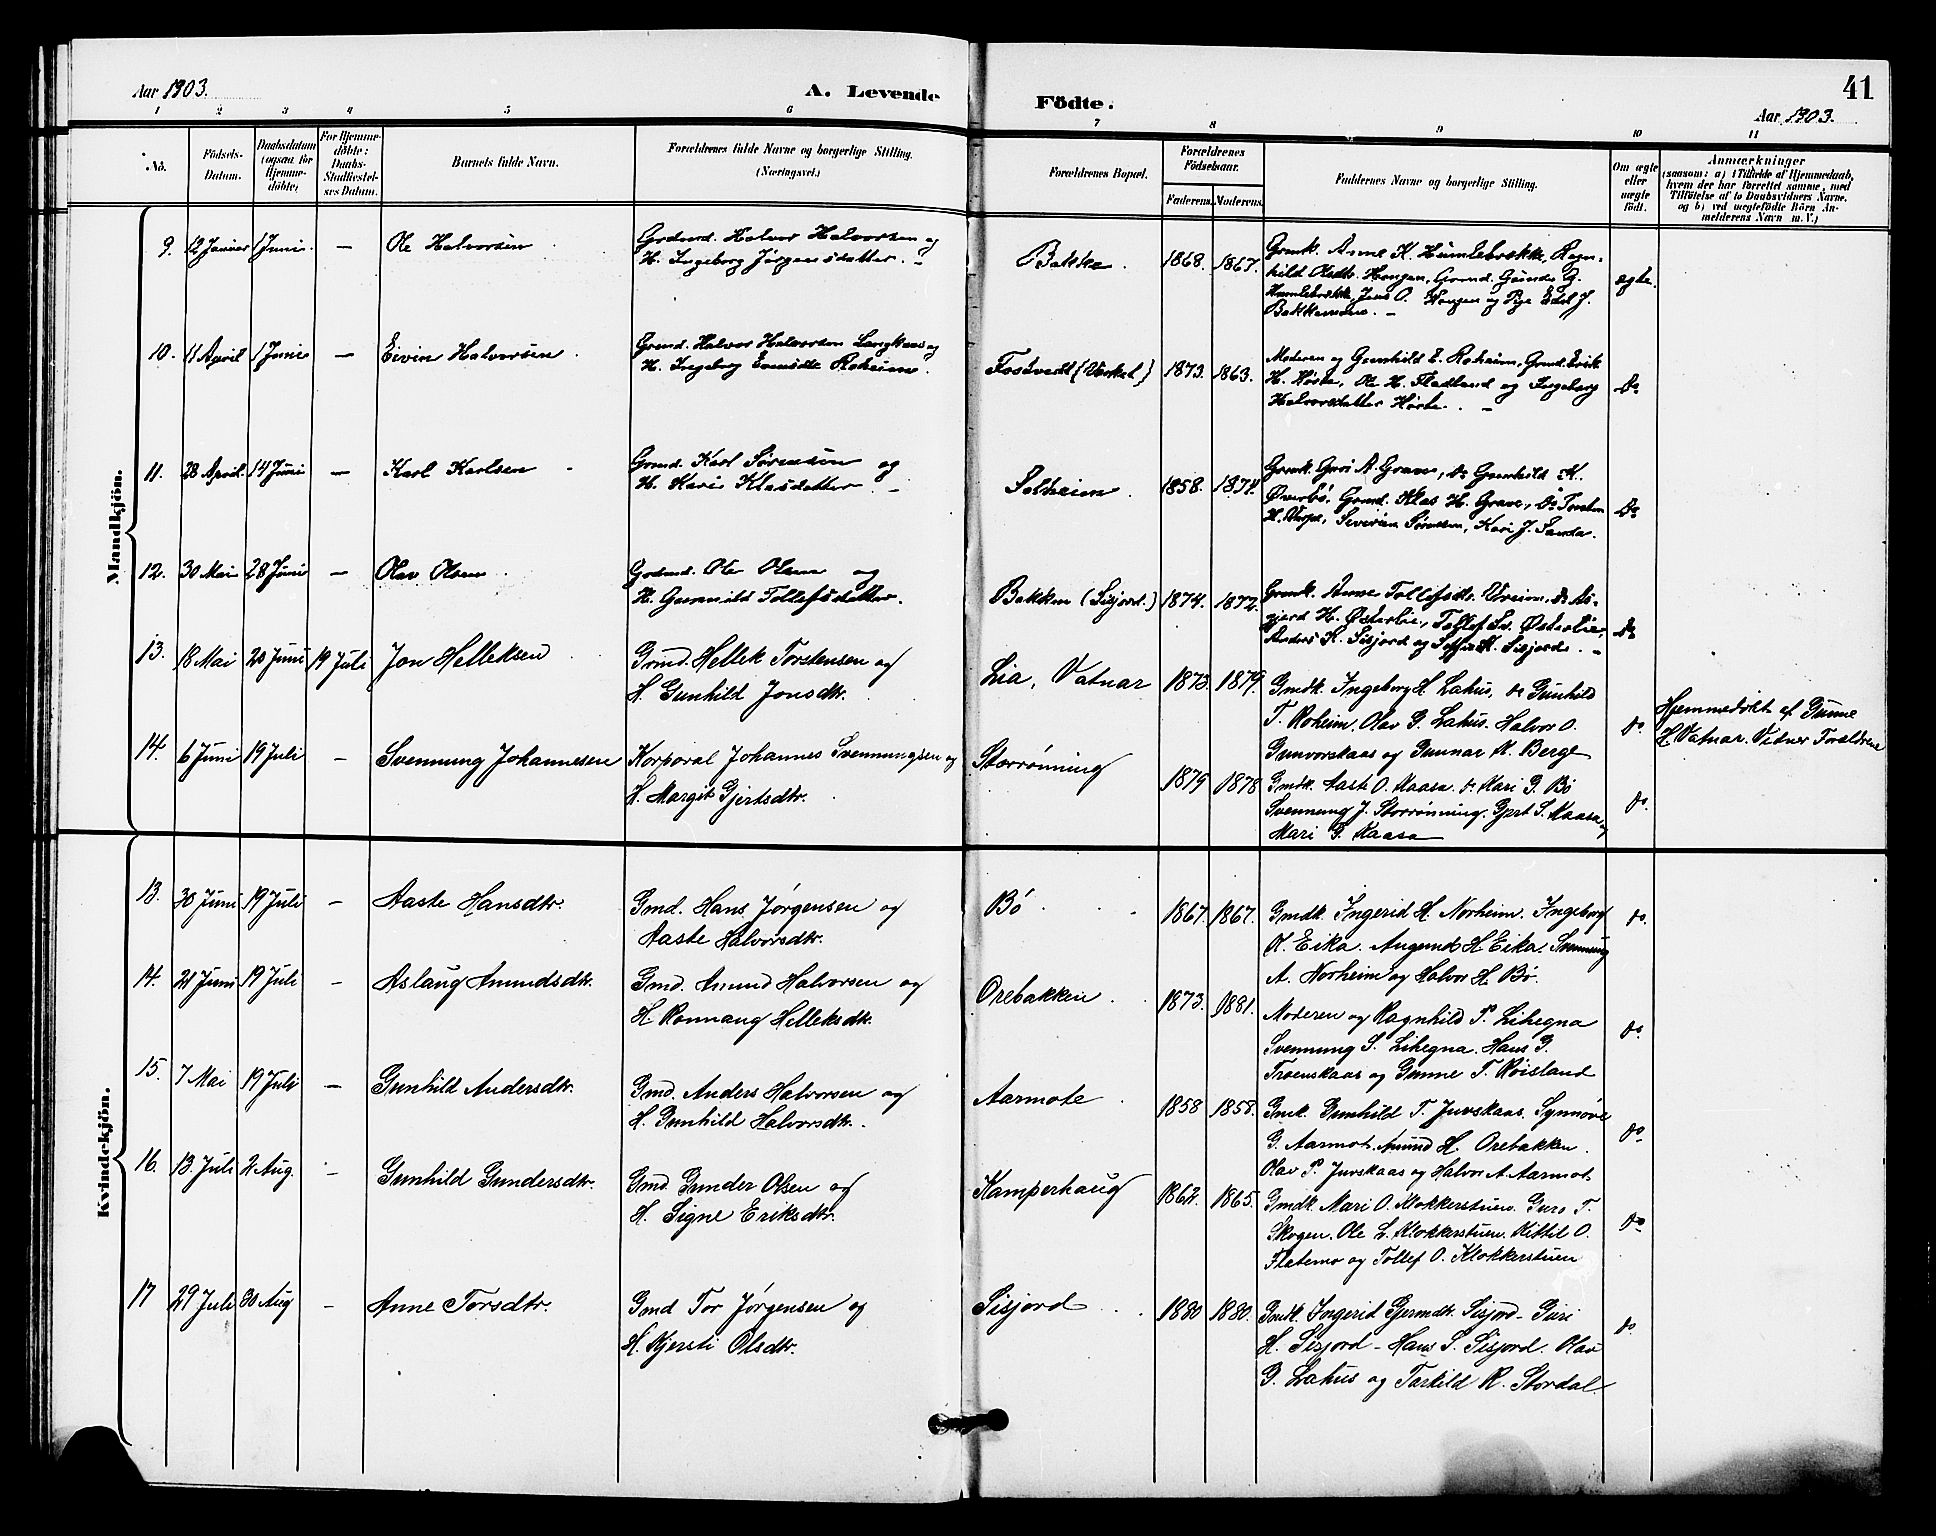 Aar 1903.
A. Levende
Födte.
41
Aar 1903.
1 2 3 4 5 6 7 8 9 10 11
No.
Födsels-
Datum.
Daabsdatum
(ogsaa for
Hjemme-
döbte)
For Hjemme-
döbte:
Daabs-
Stadfæstel-
ses Datum.
Barnets fulde Navn.
Forældrenes fulde Navne og borgerlige Stilling.
(Næringsvei.)
Forældrenes Bopæl.
Forældrenes
Födselsaar.
Faderens. Moderens.
Faddernes Navne og borgerlige Stilling.
Om ægte
eller
uægte
födt.
Anmærkninger
(saasom: a) i Tilfælde af Hjemmedaab,
hvem der har forrettet samme, med
Tilföielse af to Daabsvidners Navne,
og b) ved uægtefödte Börn An-
melderens Navn m. V.)
Mandkjön.
9. 12 Januar 1 Juni. — Ole Halvorsen
Grdmd. Halvor Halvorsen og
H. Ingeborg Jørgensdatter. -
Bakka. 1868. 1867.
Grmk. Anne K. Humlebrække, Ragn-
hild Olsdtr. Haugen, Grmd. Gunder G.
Humlebrække, Jens O. Haugen og Pige Edel J.
Bakkemoen. -
ægte.
10. 11 April 1 Juni — Eivin Halvorsen
Grmd. Halvor Halvorsen Langkaas og
H. Ingeborg Evensdtr Roheim.
Fostvedt (Verket) 1873. 1863.
Moderen og Gunhild E. Roheim, Grmd. Erik
H. Hørte, Ole H. Fladland og Ingeborg
Halvorsdatter Hørte. -
Do
11. 28 April. 14 Juni — Karl Karlsen
Grmd. Karl Sørensen og
H. Kari Klasdatter. -
Solheim. 1858. 1874.
Grmk. Guri A. Grave, Do Gunhild K.
Øverbø. Grmd. Klas H. Grave, Do Torsten
H. Verpe, Severin Sørensen, Kari J. Sanda.
Do
12. 30 Mai 28 Juni — Olav Olsen
Grdmd. Ole Olsen og
H. Gunnild Tollefsdatter.
Bakken (Sisjord.) 1874. 1872.
Grmk. Anne Tollefsdtr. Vreim, Do As-
gjerd H. Østerlie, Tollef Sv. Østerlie,
Anders K. Sisjord og Sofie H. Sisjord. -
Do
13. 18 Mai 20 Juni 19 Juli Jon Helleksen
Grmd. Hellek Torstensen og
H. Gunhild Jonsdtr.
Lia, Vatnar 1873. 1879.
Gmdk. Ingeborg H. Lahus, do Gunhild
T. Roheim. Olav G. Lahus. Halvor O.
Gunvorskaas og Gunnar K. Berge
do
Hjemmedøbt af Gunne
H. Vatnar. Vidner Forældrene
14. 6 Juni 19 Juli — Svennung Johannesen
Korporal Johannes Svennungsen og
H. Margit Gjertsdtr.
Storrønning 1879 1878
Gmdk. Aaste O. Kaasa. do Kari G. Bø
Svennung J. Storrønning. Gjert S. Kaasa og
Mari G. Kaasa
do.
Kvindekjön.
13. 30 Juni 19 Juli — Aaste Hansdtr.
Gmd. Hans Jørgensen og
Aaste Halvorsdtr.
Bø 1867. 1867.
Gmdk. Ingerid H. Norheim. Ingeborg
O. Eika. Augund H. Eika. Svennung
A. Norheim og Halvor H. Bø.
do.
14. 21 Juni 19 Juli — Aslaug Amundsdtr.
Gmd. Amund Halvorsen og
H. Rønnaug Helleksdtr.
Orebakken 1873. 1881.
Moderen og Ragnhild P. Lihegna
Svennung S. Lihegna. Hans G.
Troenskaas og Gunne T. Røisland
do
15. 7 Mai 19 Juli — Gunhild Andersdtr.
Gmd. Anders Halvorsen og
H. Gunhild Halvorsdtr.
Aarmote 1858 1858.
Gmk. Gunhild T. Juvskaas. Synnøve
G. Aarmot. Amund H. Orebakken.
Olav P. Juvskaas og Halvor A. Aarmot
do
16. 13. Juli 2 Aug. — Gunhild Gundersdtr.
Gmd. Gunder Olsen og
H. Signe Eriksdtr.
Kamperhaug 1862. 1865.
Gmdk. Mari O. Klokkerstuen. Guro T.
Skogen. Ole L. Klokkerstuen. Kittil O.
Flatemo og Tollef O. Klokkerstuen
do
17 29 Juli 30 Aug — Anne Torsdtr.
Gmd Tor Jørgensen og
H. Kjersti Olsdtr.
Sisjord 1880 1880.
Gmk. Ingerid Gjermdtr. Sisjord - Guri
H. Sisjord - Hans S. Sisjord. Olav
G. Lahus og Tarkild R. Stordal.
do.